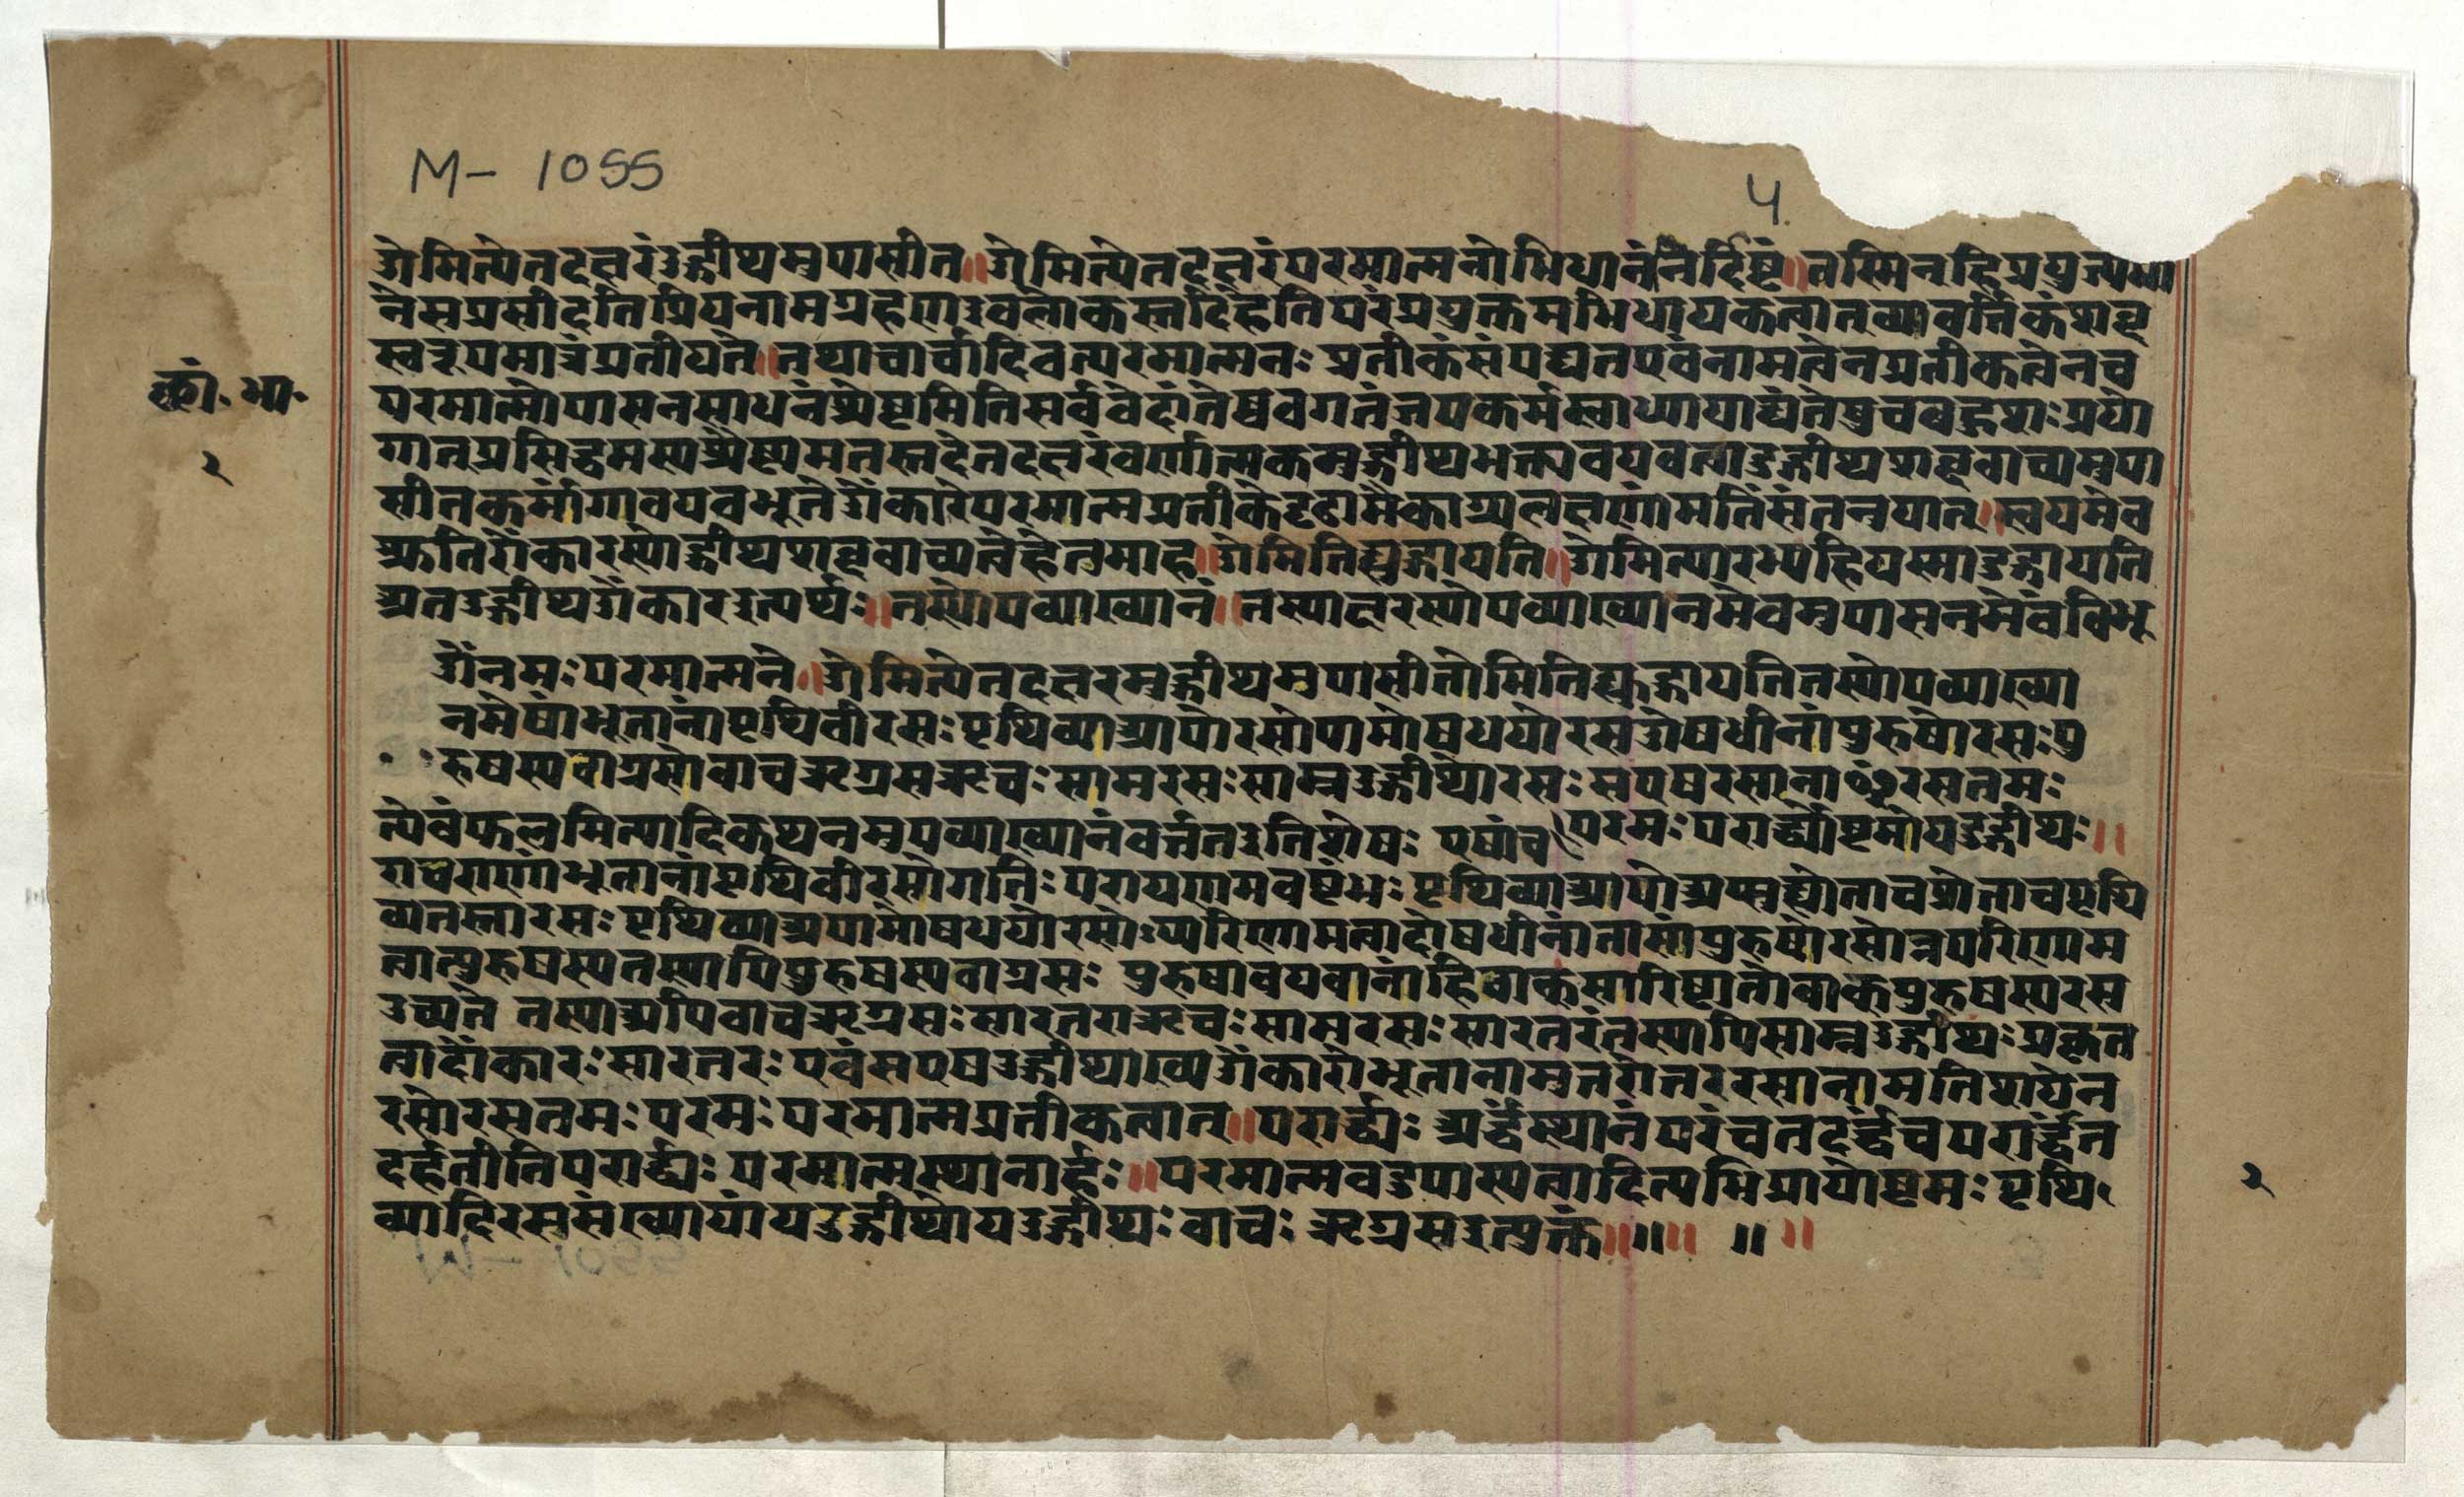 M- 1055
५
ओमित्येतदक्षरंउद्गीथमुपासीत॥ओमित्येतदक्षरंपरमात्मनोभिधानंनेदिष्टं॥तस्मिन्हिप्रयुज्यमा
नेसप्रसीदतिप्रियनामग्रहणइवलोकस्तदिहेतिपरंप्रयुक्तमभिधायकत्वात्व्यावर्त्तितंशब्द
स्वरूपमात्रंप्रतीयते॥तथाचार्चादिवत्परमात्मनः प्रतीकंसंपद्यतएवंनामत्वेनप्रतीकत्वेनच
छां. भा.
परमात्मोपासनसाधनंश्रेष्टमितिसर्ववेदांतेष्ववगतंजपकर्मस्वाध्यायाद्यंतेषुचबहुशः प्रयो
२
गात्प्रसिद्धमस्यश्रैष्ट्यमतस्तदेतदक्षरंवर्णात्मकमुद्गीथभक्त्यवयवत्वादुद्गीथशब्दवाच्यमुपा
सीतकर्मांगावयवभूतेओंकारेपरमात्मप्रतीकेदृढामैकाग्र्यलक्षणांमतिंसंतनुयात्॥स्वयमेव
श्रुतिरोंकारस्योद्गीथशब्दवाच्यत्वेहेतुमाह॥ओमितिह्युद्गायति॥ओमित्यारभ्यहियस्मादुद्गायति
अतउद्गीथओंकारइत्यर्थः॥तस्योपव्याख्यानं॥तस्याक्षरस्योपव्याख्यानमेवमुपासनमेवंविभू
ओंनमः परमात्मने॥ओमित्येतदक्षरमुद्गीथमुपासीतोमितिह्युद्गायतितस्योपव्याख्या
नमेषांभूतानांपृथिवीरसः पृथिव्याआपोरसोपामोषधयोरसओषधीनांपुरुषोरसः पु
रुषस्यवाग्रसोवाचऋग्रसऋचः सामरसः साम्नउद्गीथोरसः सएषरसानाꣳरसतमः
परमः परार्द्ध्योष्टमोयउद्गीथः॥
त्येवंफलमित्यादिकथनमुपव्याख्यानंवर्त्ततइतिशेषः एषांच
राचराणांभूतानांपृथिवीरसोगतिः परायणमवष्टंभः पृथिव्याआपोअप्सुह्योताचप्रोताचपृथि
व्यतस्तारसः पृथिव्याअपामोषधयोरसोऽप्परिणामत्वादोषधीनांतासांपुरुषोरसोन्नपरिणाम
त्वात्पुरुषस्यतस्यापिपुरुषस्यवाग्रसः पुरुषावयवानांहिवाक्सारिष्टातोवाक्पुरुषस्यरस
उच्यते तस्याअपिवाचऋग्रसः सारतराऋचः सामरसः सारतरंतस्यापिसाम्नउद्गीथः प्रकृत
त्वादोंकारः सारतरः एवंसएषउद्गीथाख्यओंकारोभूतानामुत्तरोत्तररसानामतिशयेन
रसोरसतमः परमः परमात्मप्रतीकत्वात्॥परार्द्ध्यः अर्द्धंस्थानंपरंचतदर्द्धंचपरार्द्धंत
दर्हतीतिपरार्द्ध्यः परमात्मस्थानार्हः॥परमात्मवदुपास्यत्वादित्यभिप्रायोष्टमः पृथि
२
व्यादिरससंख्यायांयउद्गीथोयउद्गीथः वाचः ऋग्रसइत्युक्तं॥॥॥ ॥ ॥